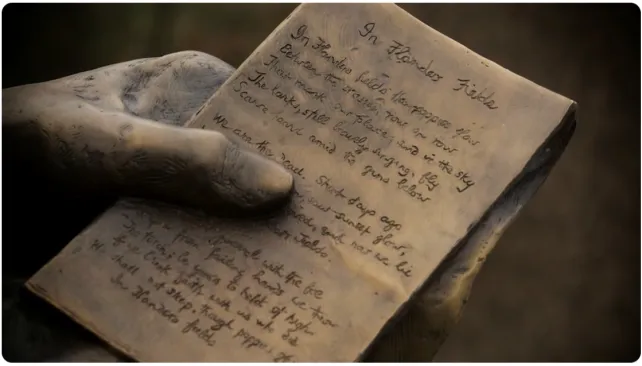 In Flanders Fields
In Flanders fields the poppies flow
Between the crosses, row on row
That mark our place; and in the sky
The larks, still bravely singing, fly
Scarce heard amid the guns below
We are the dead. Short days ago
saw sunset glow,
and now we lie
Flanders Fields.
quarrel with the foe
To you from failing hands we throw
The torch; be yours to hold it high
If ye break faith with us who die
We shall not sleep, though poppies
In Flanders fields